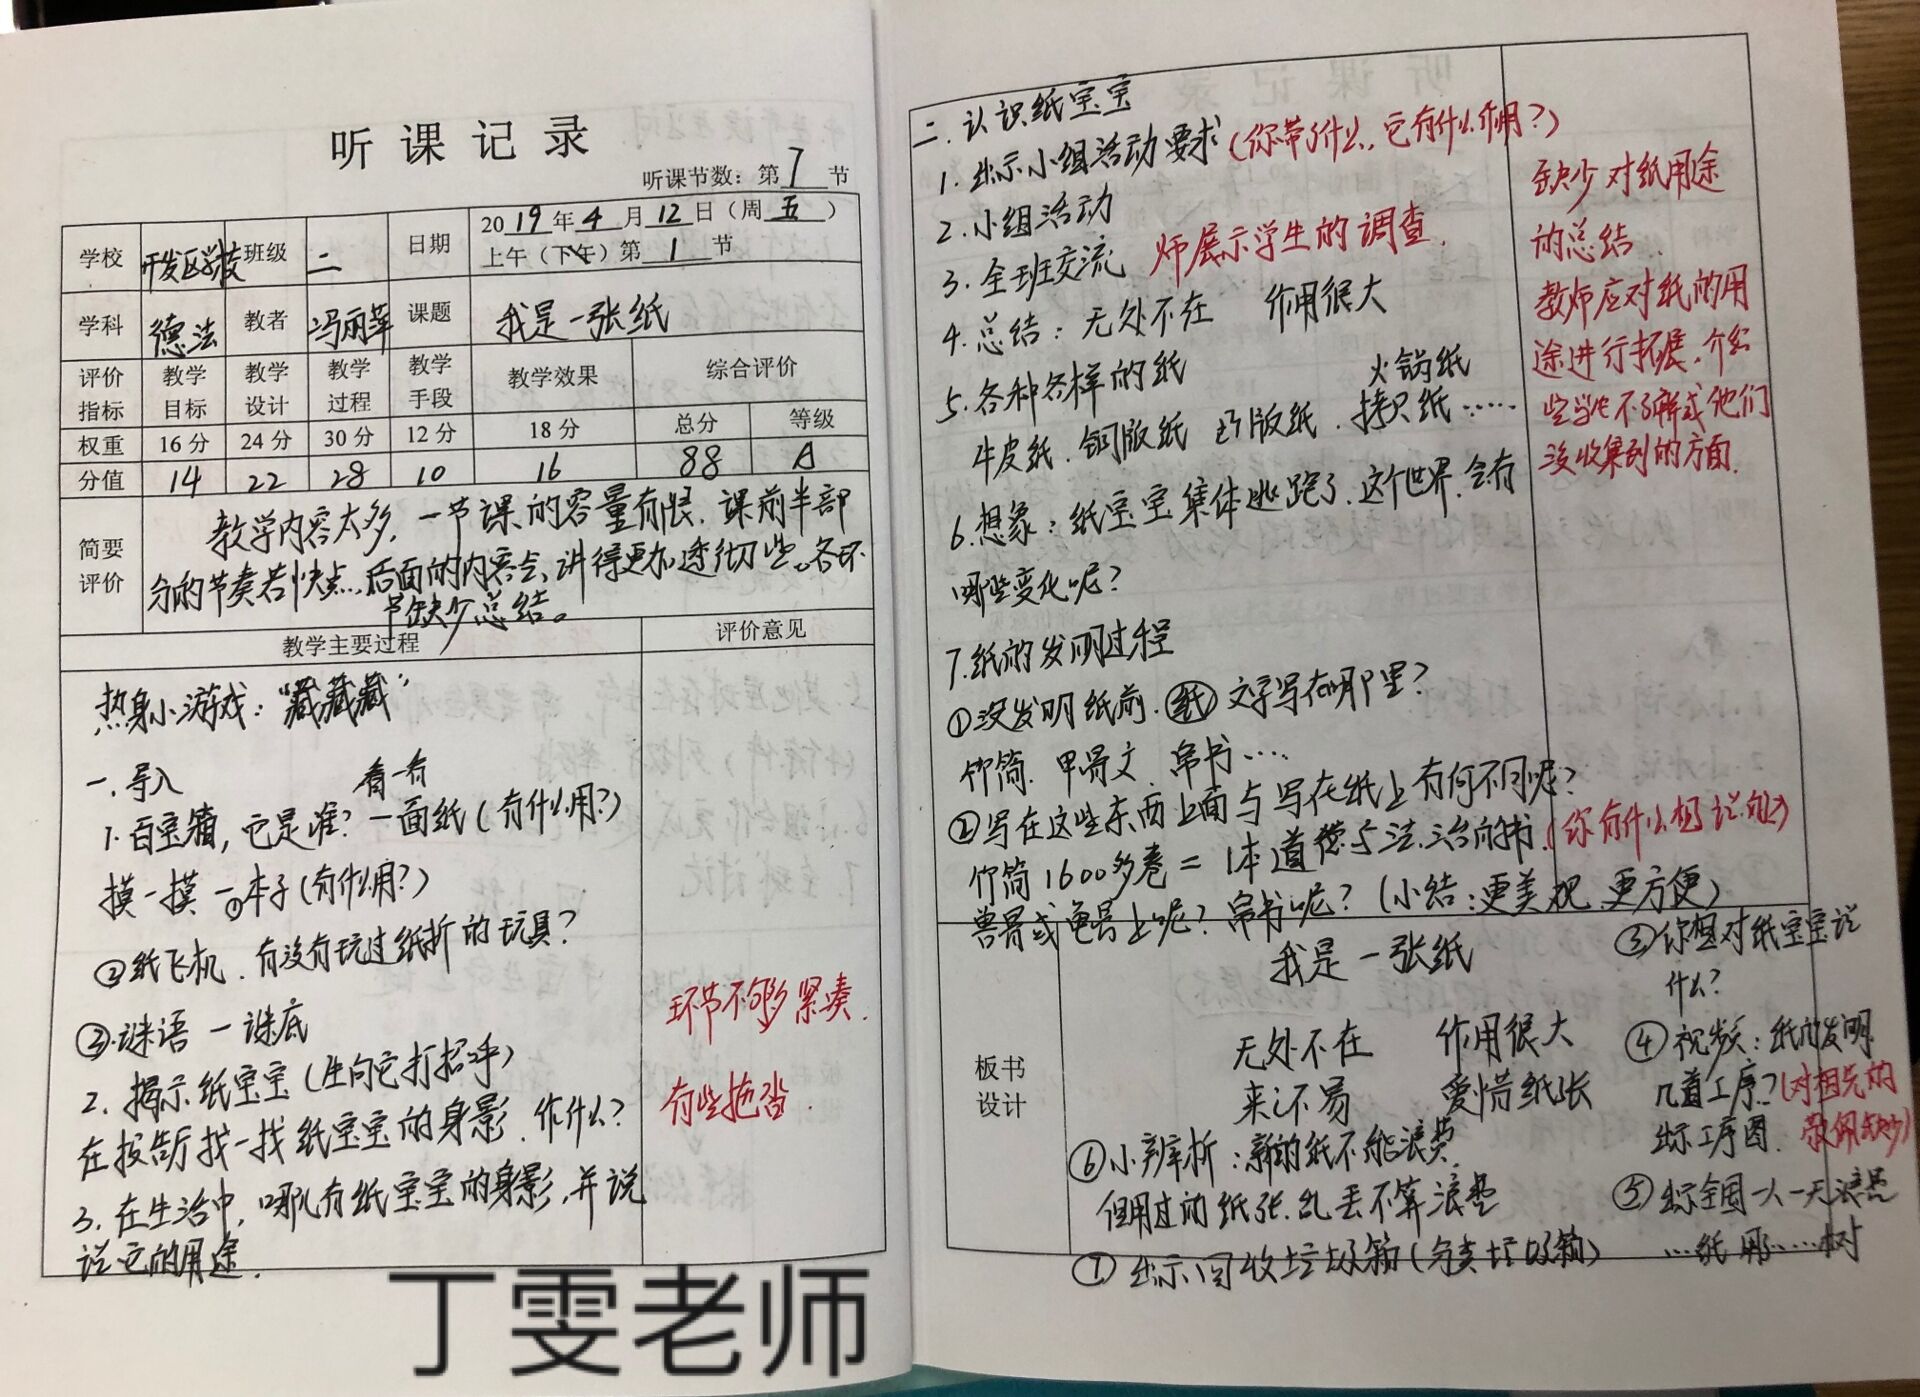 听课记录
听课节数：第7节
学校 开发区学校 班级 二 日期 2019年4月12日（周五）
上午（下午）第1节
学科 德法 教者 冯丽萍 课题 我是一张纸
评价指标 教学目标 教学设计 教学过程 教学手段 教学效果 综合评价
权重 16分 24分 30分 12分 18分 总分 等级
分值 14 22 28 10 16 88 A
简要评价
教学内容太多，一节课的容量有限，课前半部
分的节奏若快点，后面的内容会讲得更加透彻些。各环
节缺少总结。
教学主要过程 评价意见
热身小游戏：“藏藏藏”
一、导入 看一看
1.百宝箱，它是谁？一面纸（有什么用？）
摸一摸 一本子（有什么用？）
②纸飞机，有没有玩过纸折的玩具？
③谜语 一谜底
2.揭示纸宝宝（生向它打招呼）
在报告厅找一找纸宝宝的身影，作什么？
3.在生活中，哪儿有纸宝宝的身影，并说
说它的用途。
环节不够紧凑，
有些拖沓。
二、认识纸宝宝
1.出示小组活动要求（你带了什么，它有什么作用？）
2.小组活动
3.全班交流 师展示学生的调查
4.总结：无处不在 作用很大
5.各种各样的纸 火锅纸
牛皮纸、铜版纸 拷贝纸……
6.想象：纸宝宝集体逃跑了，这个世界，会有
哪些变化呢？
7.纸的发明过程
①没发明纸前，纸 文字写在哪里？
竹简、甲骨文、帛书…
②写在这些东西上面与写在纸上有何不同呢？
竹简1600多卷=1本道德与法治的书（你有什么想说的）
兽骨或龟骨上呢？帛书呢？（小结：更美观 更方便）
缺少对纸用途
的总结。
教师应对纸的用
途进行拓展，介绍
些学生不了解或他们
没收集到的方面。
板书设计
我是一张纸
无处不在 作用很大
来之不易 爱惜纸张
③你想对纸宝宝说
什么？
④视频：纸的发明
几道工序？（对祖先的
出示工序图 敬佩缺少）
⑤出示全国一人一天浪费
…纸 用……树
⑥小辨析：新的纸不能浪费
但用过的纸张，乱丢不算浪费
⑦出示回收垃圾箱（分类垃圾箱）
丁雯老师